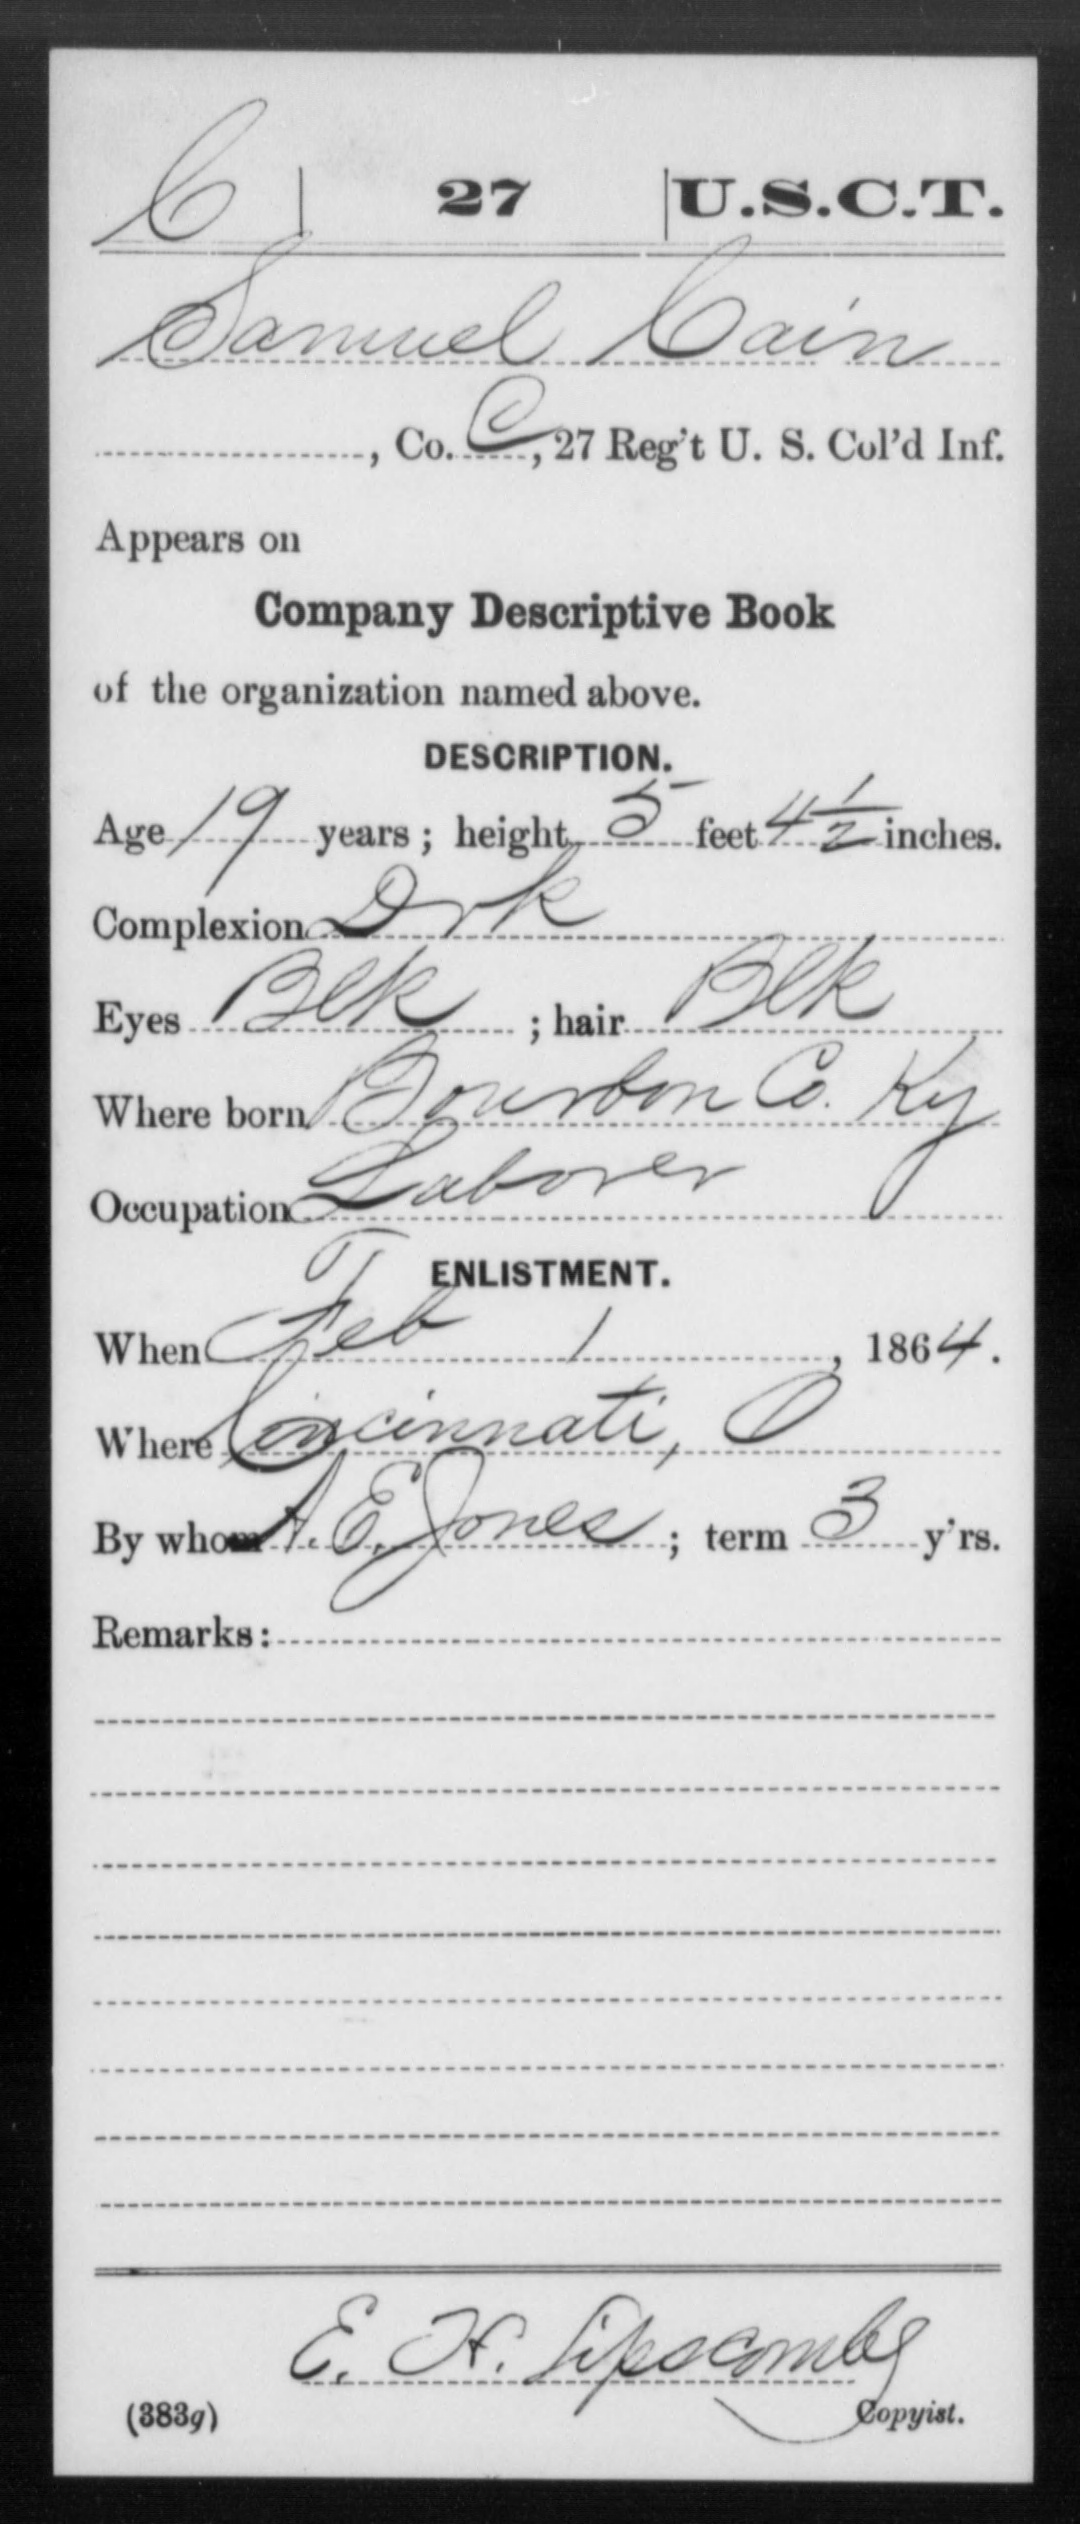 C | 27 | U.S.C.T.
Samuel Cain
, Co. C, 27 Reg't U. S. Col'd Inf.
Appears on
Company Descriptive Book
of the organization named above.
DESCRIPTION.
Age 19 years; height 5 feet 4 1/2 inches.
Complexion Drk
Eyes Blk ; hair Blk
Where born Bourbon Co. Ky
Occupation Laborer
ENLISTMENT.
When Feb 1, 1864.
Where Cincinnati, O
By whom A. E. Jones; term 3 y'rs.
Remarks:
E. H. Lipscomb
(383g) Copyist.